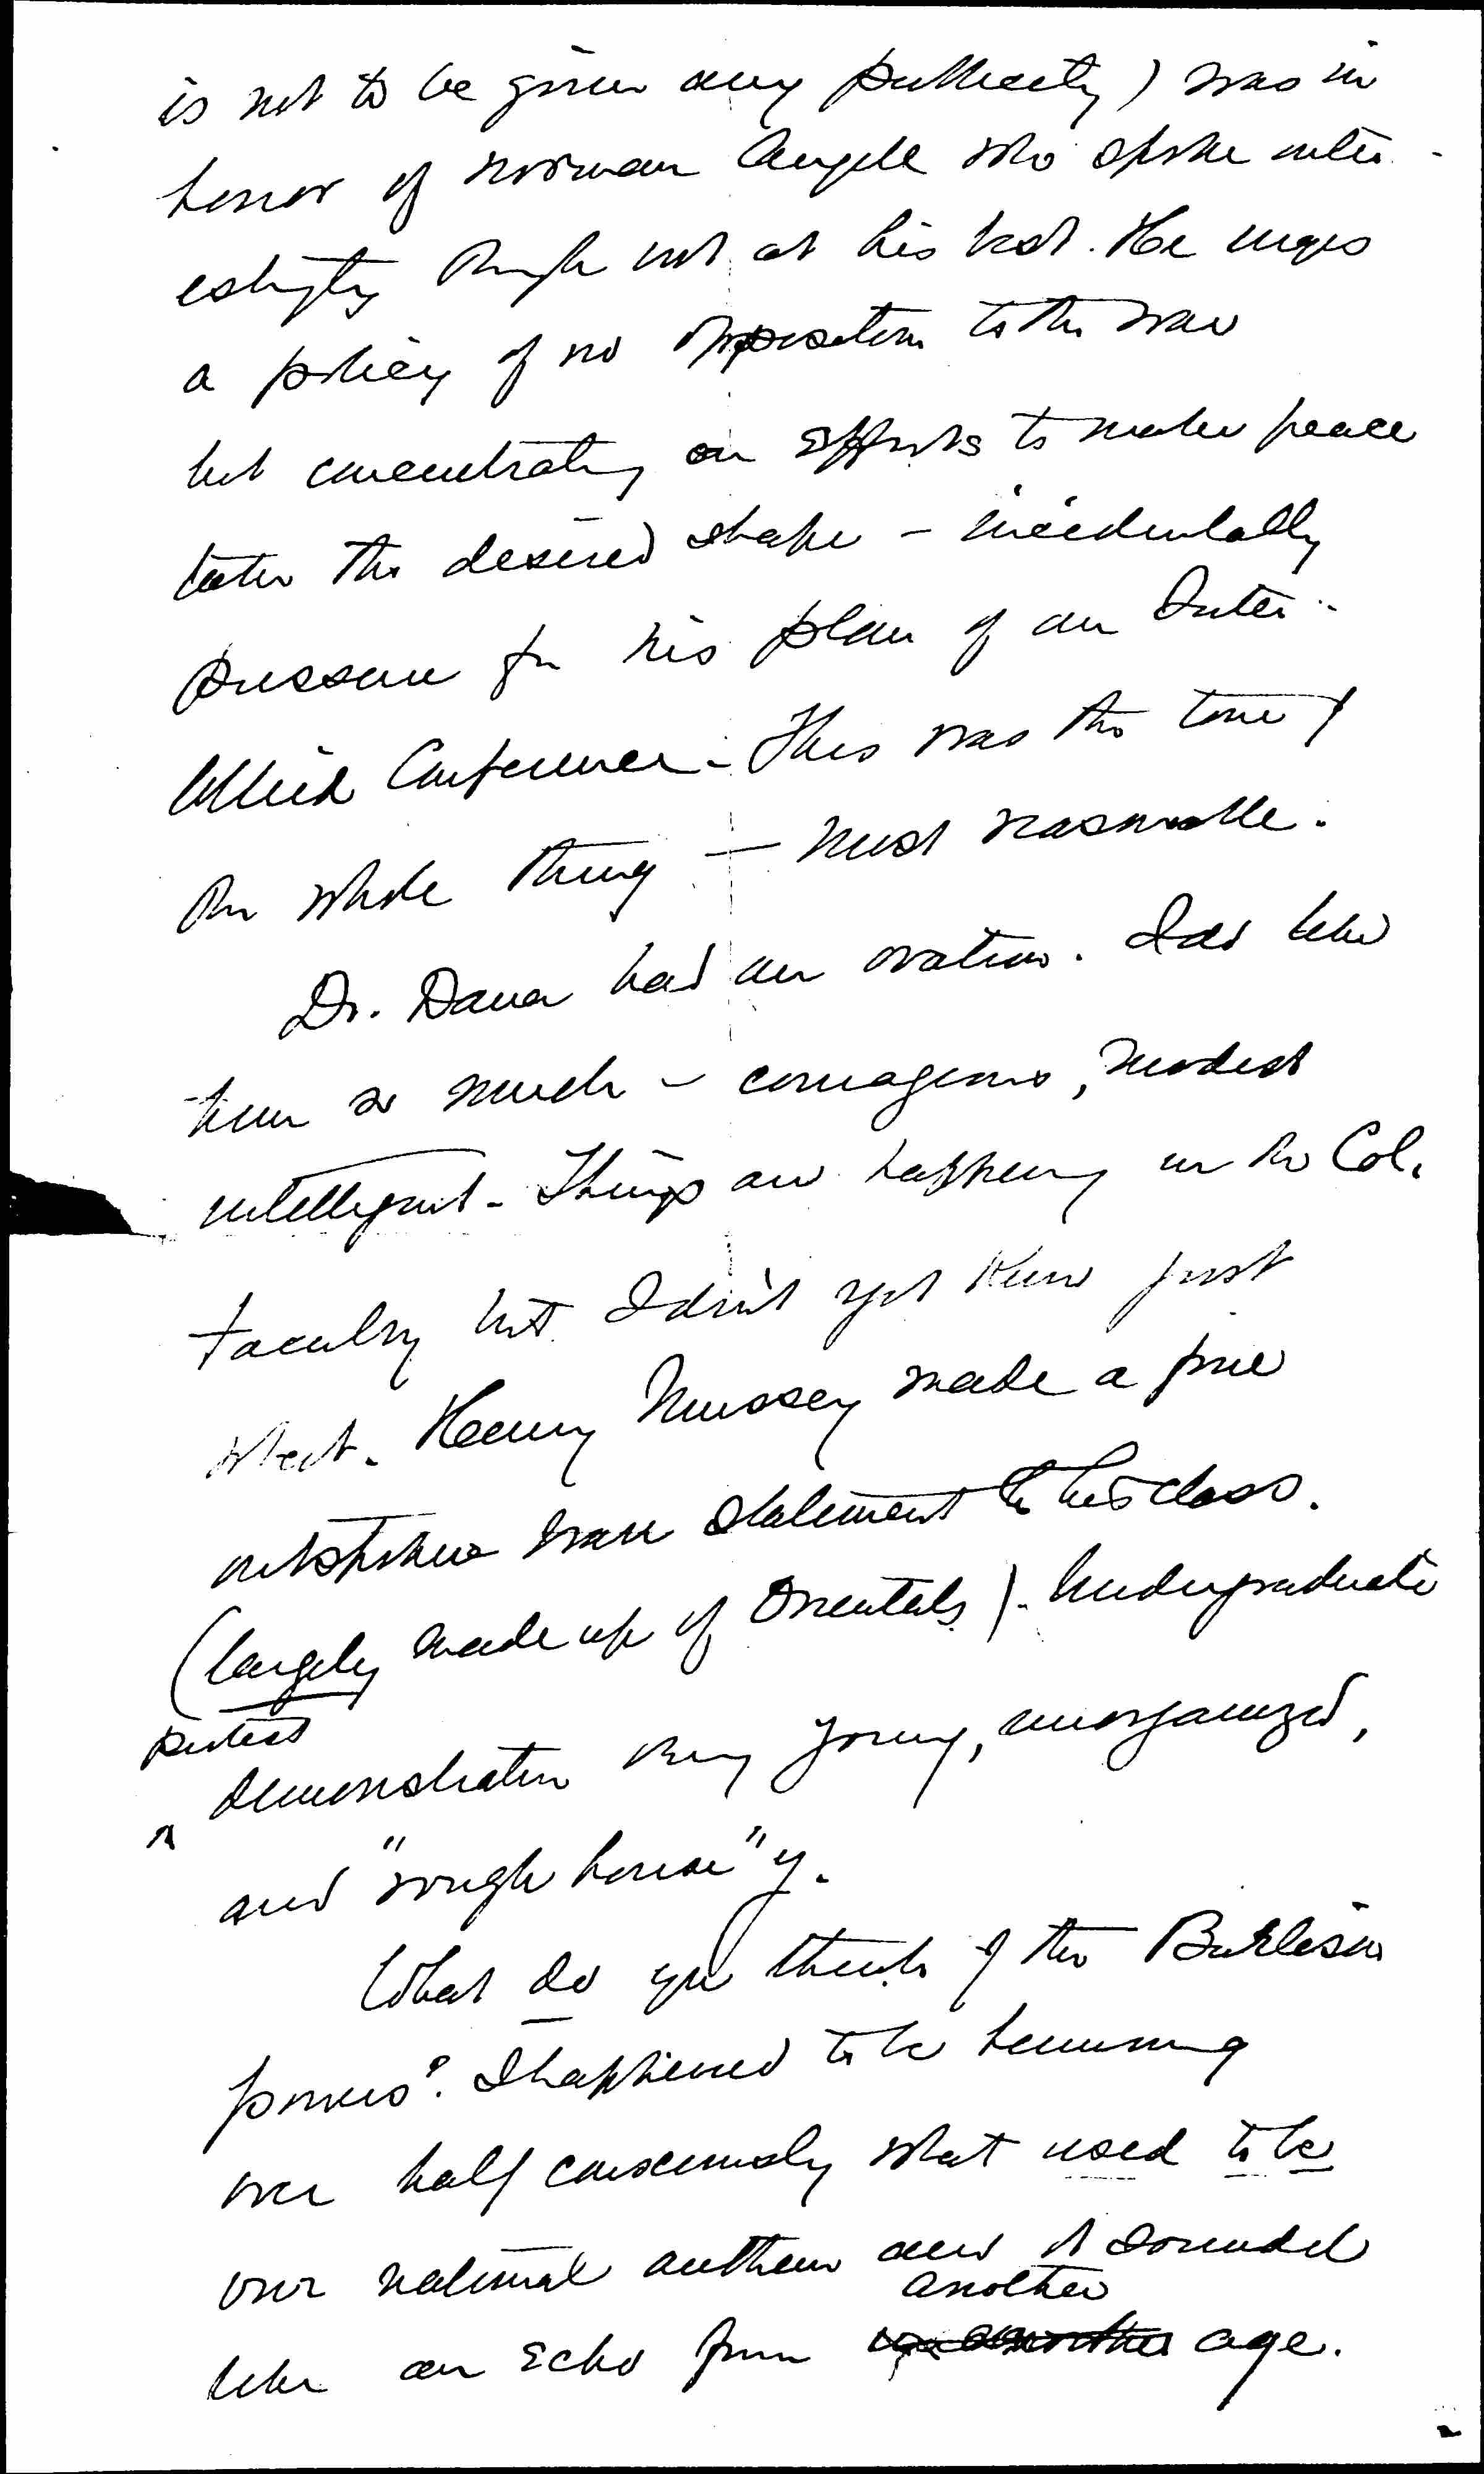 is not to be given any publicity) was in
honor of Norman Angell who spoke inter-
estingly though not at his best. He urges
a policy of no opposition to the war
but concentrating on efforts to make peace
take the desired shape - incidentally
pressure for his plan of an Inter-
Allied Conference - This was the tone of
the whole thing - most reasonable.
Dr. Dana had an ovation. I do like
him so much - courageous, modest
intelligent - Things are happening in the Col.
faculty but I don't yet know just
what. Henry Mussey made a fine
outspoken war statement to his class.
(largely made up of Orientals). Undergraduate
protest
demonstration very young, unorganized,
and "rough house"y.
What do you think of the Burleson
powers? I happened to be humming
over half consciously what used to be
our national anthem and it sounded
another
like an echo from another age.